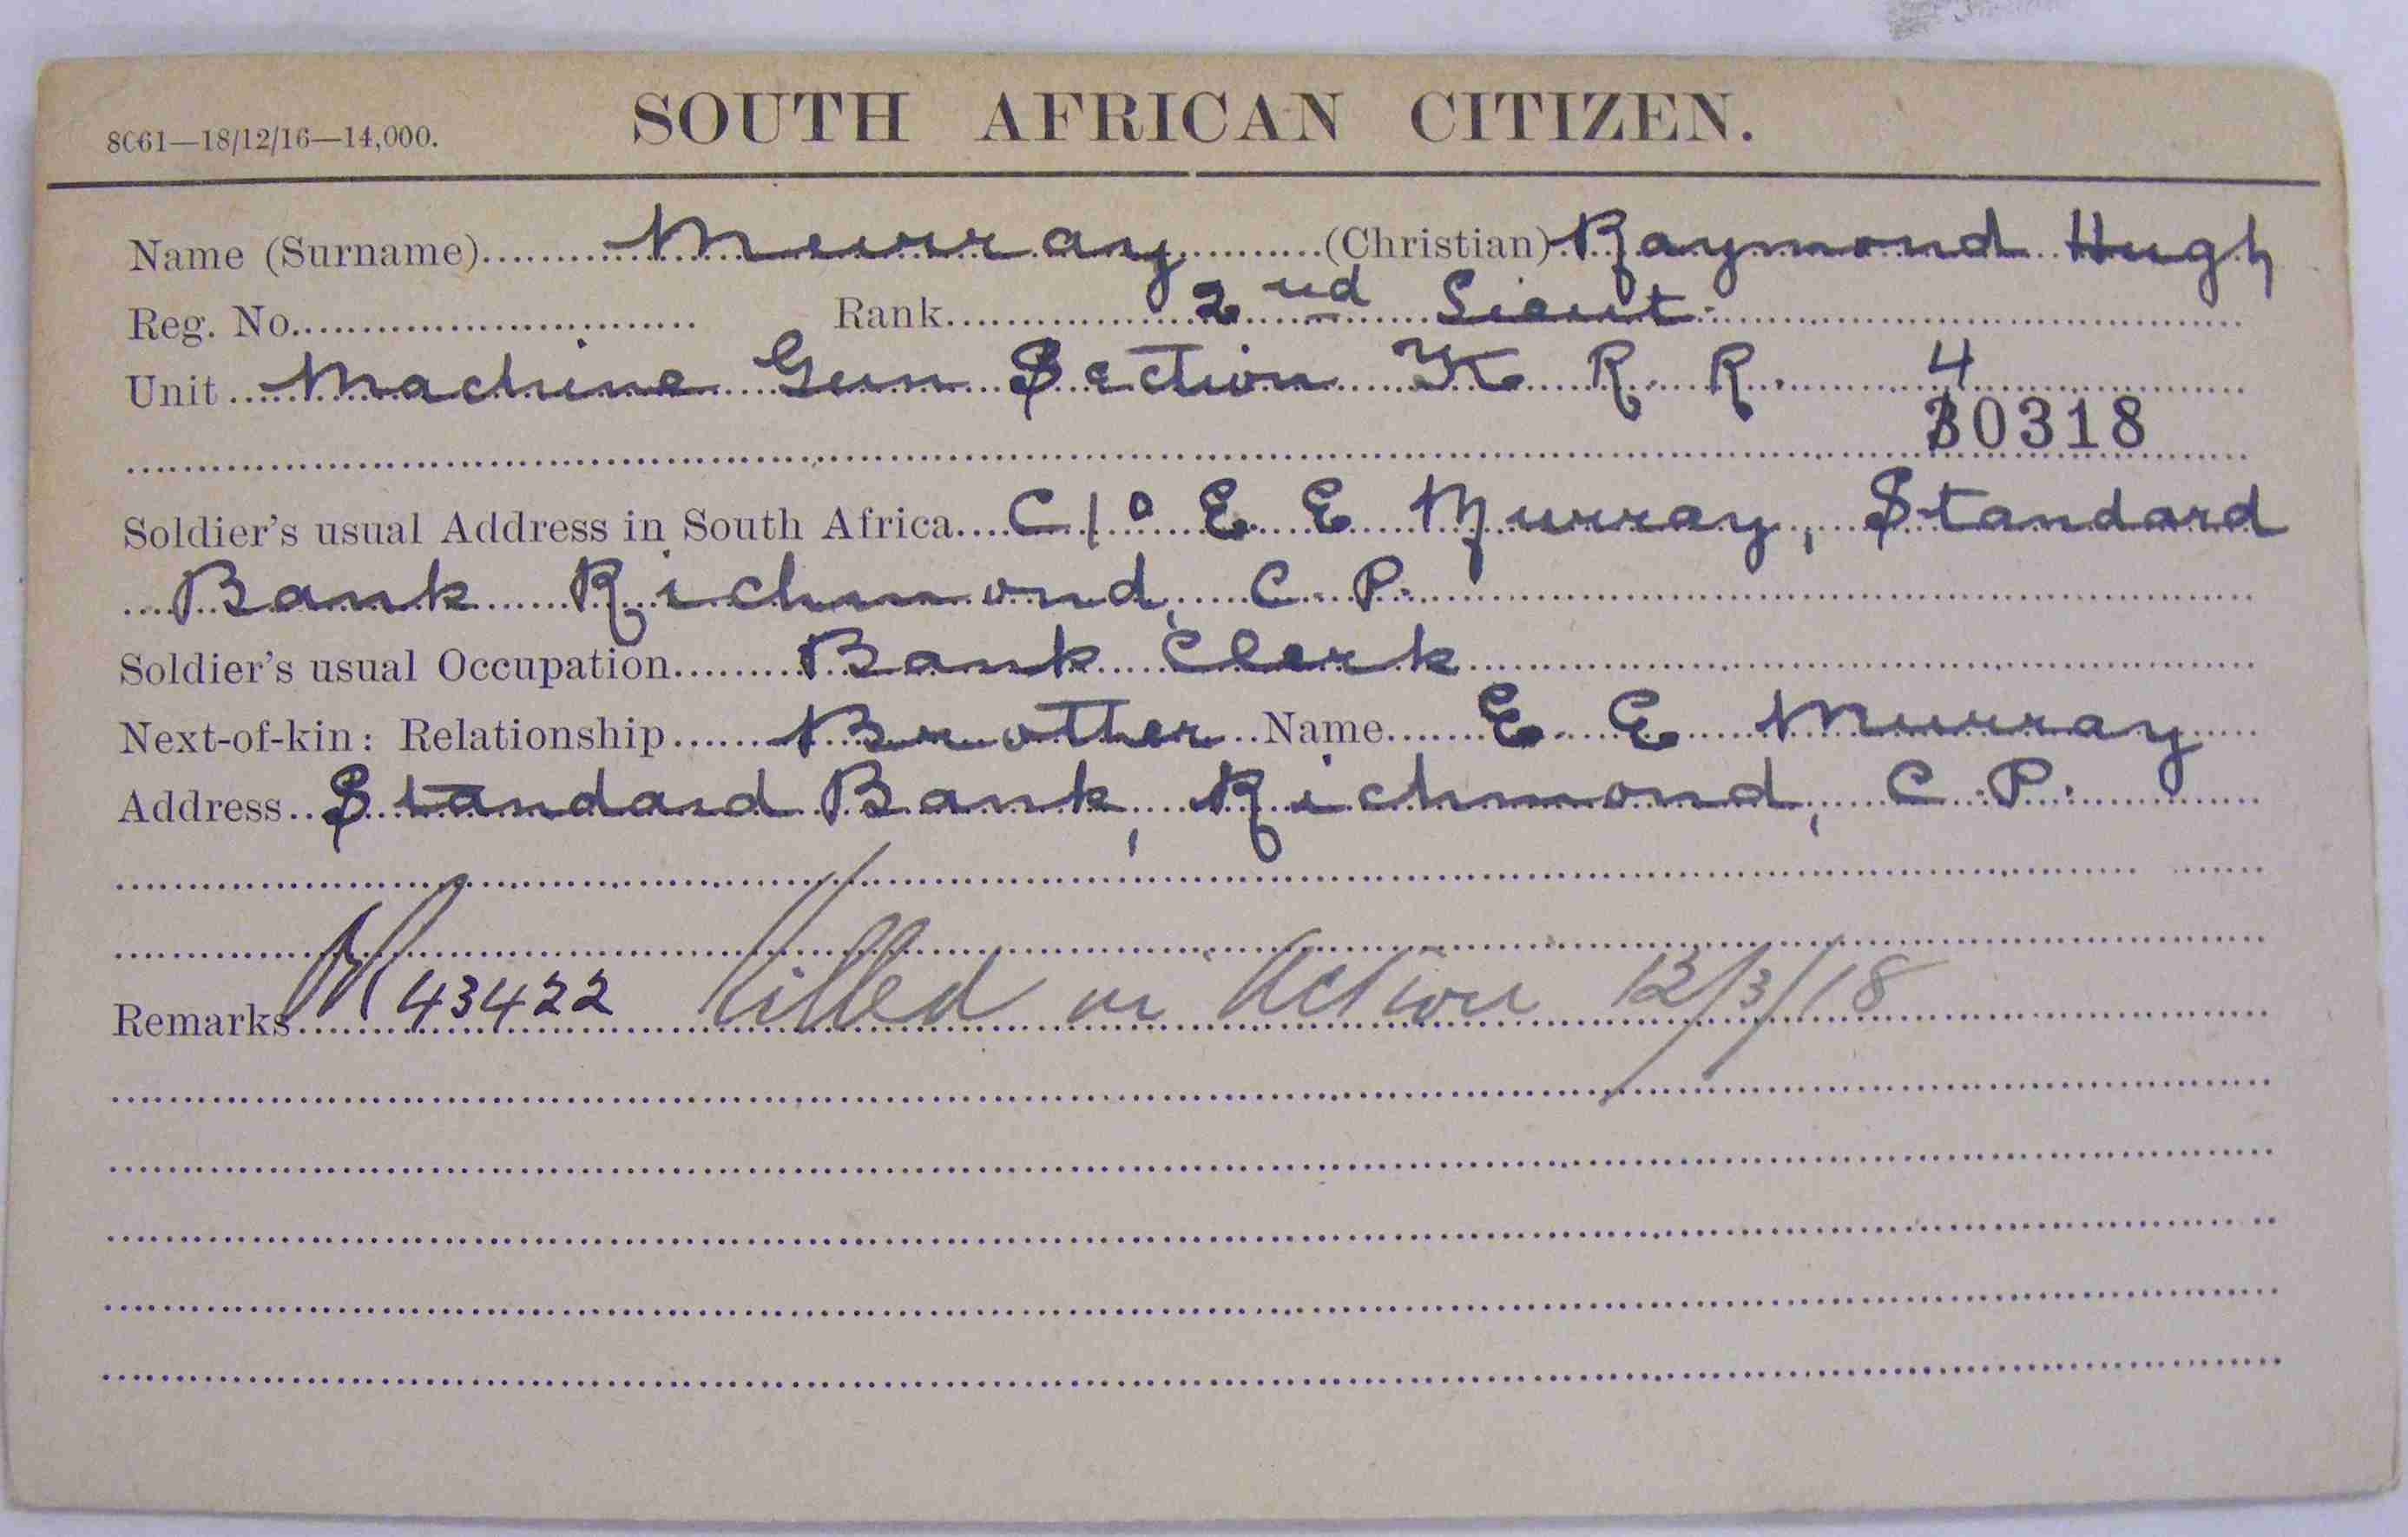 8C61—18/12/16—14,000. SOUTH AFRICAN CITIZEN.
Name (Surname) Murray (Christian) Raymond Hugh
Reg. No. Rank 2nd Lieut.
Unit Machine Gun Section K. R. R. 4
30318
Soldier's usual Address in South Africa C/o E. E. Murray, Standard
Bank Richmond, C. P.
Soldier's usual Occupation Bank Clerk
Next-of-kin: Relationship Brother Name E. E. Murray
Address Standard Bank, Richmond, C. P.
Remarks 43422 Killed in Action 12/3/18